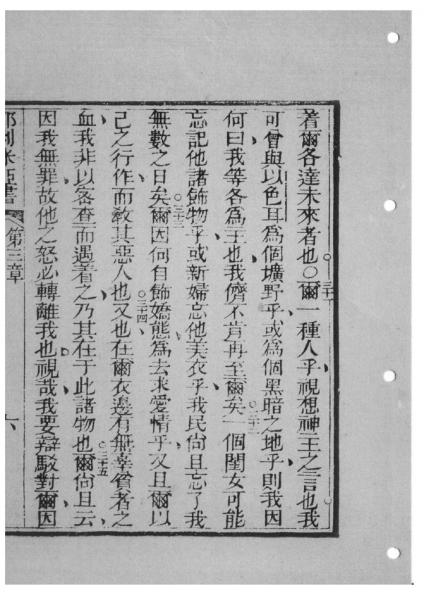 着爾各達未來者也○爾一種人乎視想神王之言也我
三十一
可曾與以色耳為個壙野乎或為個黑暗之地乎則我因
何曰我等各為王也我儕不肯再至爾矣一個閨女可能
三十二
忘記他諸飾物乎或新婦忘他美衣乎我民尚且忘了我
無數之日矣爾因何自飾嬌態為去求愛情乎又且爾以
三十三
己之行作而教其惡人也又也在爾衣邊有無辜貧者之
三十四
血我非以密查而遇着之乃其在于此諸物也爾尚且云
三十五
因我無罪故他之怒必轉離我也視哉我要辯駁對爾因
書 第三章 六